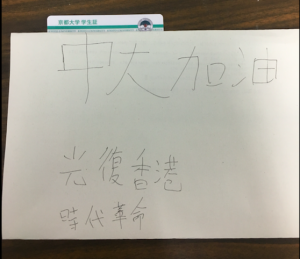 京都大学 学生証
中大加油
光復香港
時代革命